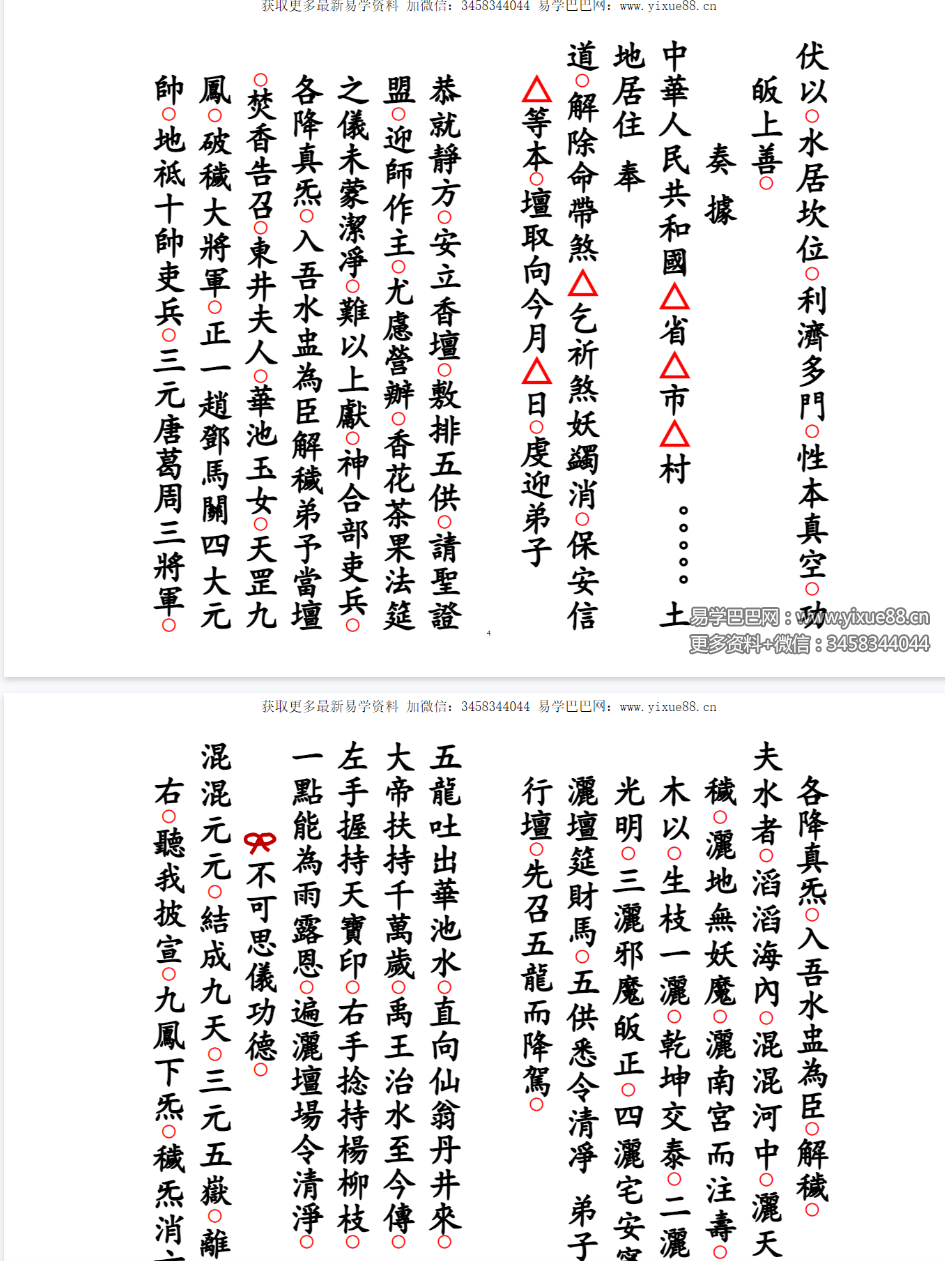 获取更多最新易学资料 加微信：3458344044 易学巴巴网：www.yixue88.cn
伏以○水居坎位○利濟多門○性本真空○功
皈上善○
奏 據
中華人民共和國△省△市△村 。。。。。 土
地居住 奉
道○解除命帶煞△乞祈煞妖蠲消○保安信
△等本○壇取向今月△日○虔迎弟子
恭就靜方○安立香壇○敷排五供○請聖證
盟○迎師作主○尤慮營辦○香花茶果法筵
之儀未蒙潔淨○難以上獻○神合部吏兵○
各降真炁○入吾水盅為臣解穢弟予當壇
○焚香告召○東井夫人○華池玉女○天罡九
鳳○破穢大將軍○正一趙鄧馬關四大元
帥○地祇十帥吏兵○三元唐葛周三將軍○
4
易学巴巴网：www.yixue88.cn
更多资料+微信：3458344044
获取更多最新易学资料 加微信：3458344044 易学巴巴网：www.yixue88.cn
各降真炁○入吾水盅為臣○解穢○
夫水者○滔滔海內○混混河中○灑天
穢○灑地無妖魔○灑南宮而注壽○
木以○生枝一灑○乾坤交泰○二灑
光明○三灑邪魔皈正○四灑宅安寧
灑壇筵財馬○五供悉令清淨 弟子
行壇○先召五龍而降駕○
五龍吐出華池水○直向仙翁丹井來○
大帝扶持千萬歲○禹王治水至今傳○
左手握持天寶印○右手捻持楊柳枝○
一點能為雨露恩○遍灑壇場令清淨○
不可思儀功德○
混混元元○結成九天○三元五嶽○離
右○聽我披宣○九鳳下炁○穢炁消